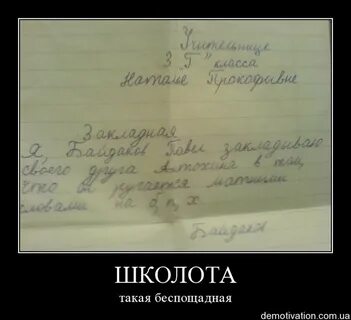 Учительнице
3 "Г" класса
Наталье Прокофьвне
Закладная
Я, Байдаков Павел закладываю
своего друга Антохина в том,
что он ругается матными
словами на б, п, х
Байдаков
ШКОЛОТА
такая беспощадная
demotivation.com.ua